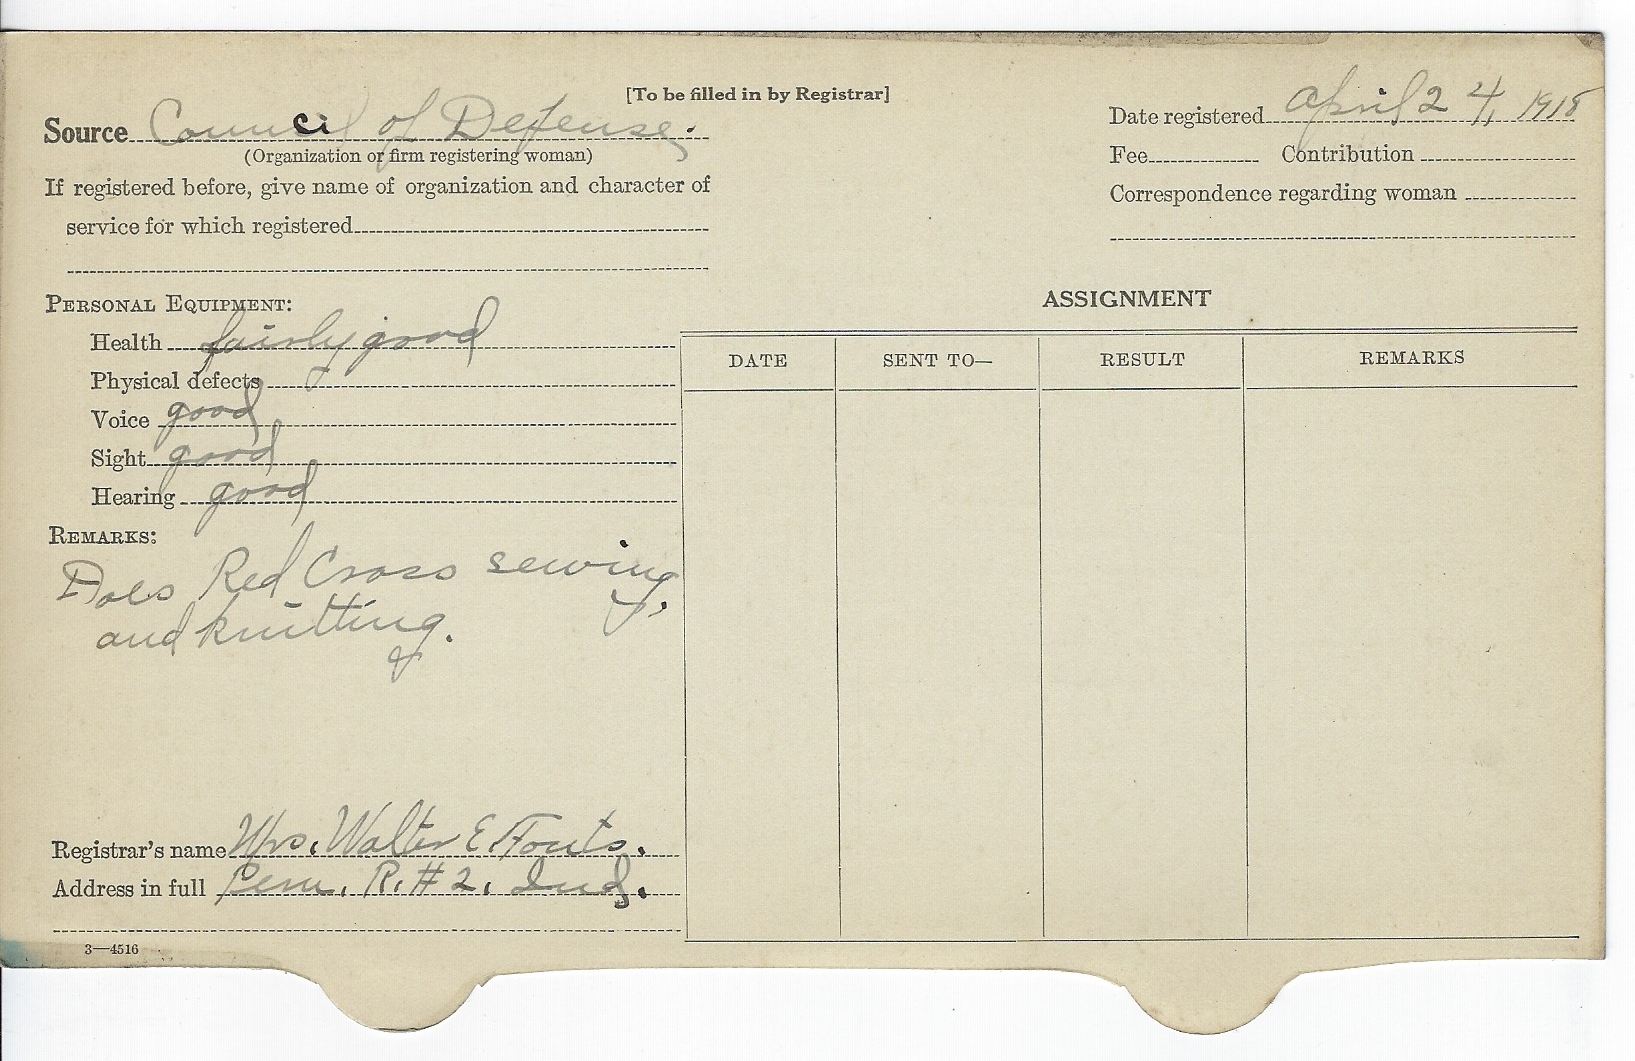 [To be filled in by Registrar]
Source Council of Defense.
(Organization or firm registering woman)
If registered before, give name of organization and character of
service for which registered
Date registered April 24, 1918
Fee Contribution
Correspondence regarding woman
PERSONAL EQUIPMENT:
Health fairly good
Physical defects
Voice good
Sight good
Hearing good
REMARKS:
Does Red Cross sewing,
and knitting.
ASSIGNMENT
DATE SENT TO— RESULT REMARKS
Registrar's name Mrs. Walter E Fouts.
Address in full Peru, R. # 2, Ind.
3—4516